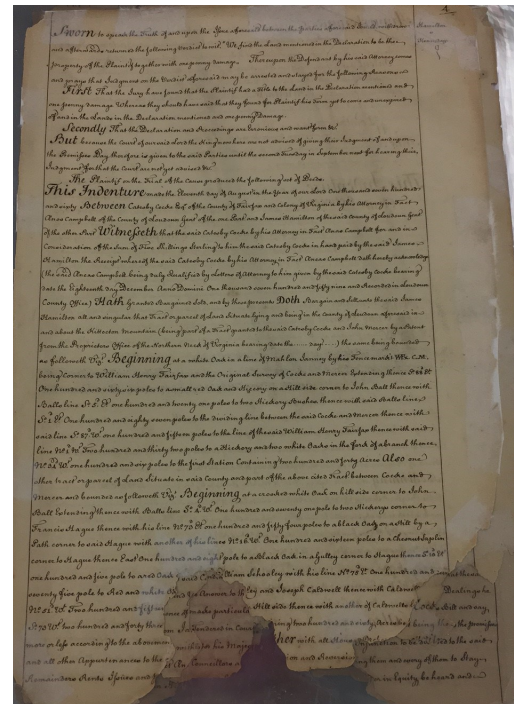 Hamilton
Sworn to speak the Truth of and upon the Issue aforesaid between the parties aforesaid
and afterwards returned the following Verdict to wit. We find the Land mentioned in the Declaration to be the
property of the Plaintif together with one penny damage. Thereupon the Defendant by his said Attorney comes
and prays that Judgment on the Verdict aforesaid may be arrested and stayed for the following Reasons
First That the Jury have found that the Plaintif had a title to the Land in the Declaration mentioned and
one penny damage Whereas they should have said that they found for Plaintif his Term yet to come and unexpired
of and in the Lands in the Declaration mentioned and one penny damage.
Secondly That the Declaration and Proceedings are Erronious and want form &c
But because the Court of our said Lord the King now here are not advised of giving their Judgment of and upon
the Premises Day therefore is given to the said Parties until the second Tuesday in September next for hearing their
Judgment for that the Court are not yet advised &c
The Plaintif on the Trial of the Cause produced the following set of Deeds
This Indenture made the Eleventh day of August in the Year of our Lord One thousand seven hundred
and sixty Between Catesby Cocke Esqr of the County of Fairfax and Colony of Virginia by his Attorney in Fact
Aneas Campbell of the County of Loudoun Gent of the one Part and James Hamilton of the said County of Loudoun Gent
of the other Part Witnesseth that the said Catesby Cocke by his Attorney in Fact Aneas Campbell for and in
Consideration of the Sum of Five Shillings Sterling to him the said Catesby Cocke in hand paid by the said James
Hamilton the Receipt whereof the said Catesby Cocke by his Attorney in Fact Aneas Campbell doth hereby acknowledge
(the said Aneas Campbell being duly Qualified by Letters of Attorney to him given by the said Catesby Cocke bearing
date the Eighteenth day December Anno Domini One thousand seven hundred and fifty nine and Recorded in Loudoun
County Office) Hath Granted Bargained Sold, and by these presents Doth Bargain and Sell unto the said James
Hamilton all and singular that Tract or parcel of Land Situate lying and being in the County of Loudoun aforesaid in
and about the Kittocton Mountain (being part of a Tract granted to the said Catesby Cocke and John Mercer by a Patent
from the Proprietors Office of the Northern Neck of Virginia bearing date the ...... day ....) the same being bounded
as followeth Viz. Beginning at a white Oak in a line of Mahlon Janney by his Fence marked
being Corner to William Henry Fairfax and the Original Survey of Cocke and Mercer Extending thence
One hundred and sixty six poles to a small red Oak and Hickory on a Hill side corner to John Ball thence with
Balls line one hundred and twenty one poles to two Hickory Bushes thence with said Balls line
One hundred and eighty seven poles to the dividing line between the said Cocke and Mercer thence with
said line one hundred and fifteen poles to the line of the said William Henry Fairfax thence with said
line Two hundred and thirty two poles to a Hickory and two white Oaks in the fork of a branch thence
one hundred and six poles to the first Station Containing two hundred and forty Acres Also one
other tract or parcel of Land Situate in said County and part of the above cited Tract between Cocke and
Mercer and bounded as followeth Viz. Beginning at a crooked white Oak on hill side corner to John
Ball Extending thence with Balls line One hundred and seventy one pole to two Hickorys corner to
Francis Hague thence with his line One hundred and fifty four poles to a black Oak on a Hill by a
Path corner to said Hague with another of his lines One hundred and sixteen poles to a Chesnut Saplin
corner to Hague thence East One hundred and eight pole to a Black Oak in a Gulley corner to Hague thence
one hundred and five pole to a red Oak with his line
seventy five pole to Red and white and Joseph Caldwell thence with Caldwell
Two hundred and Hill side thence with another of Caldwells
two hundred and forty three two hundred and sixty Acres being the
more or less according to the abovementioned with all
and all other Appurtenances to the and Reversion
Remainders Rents Issues and in Equity be heard and